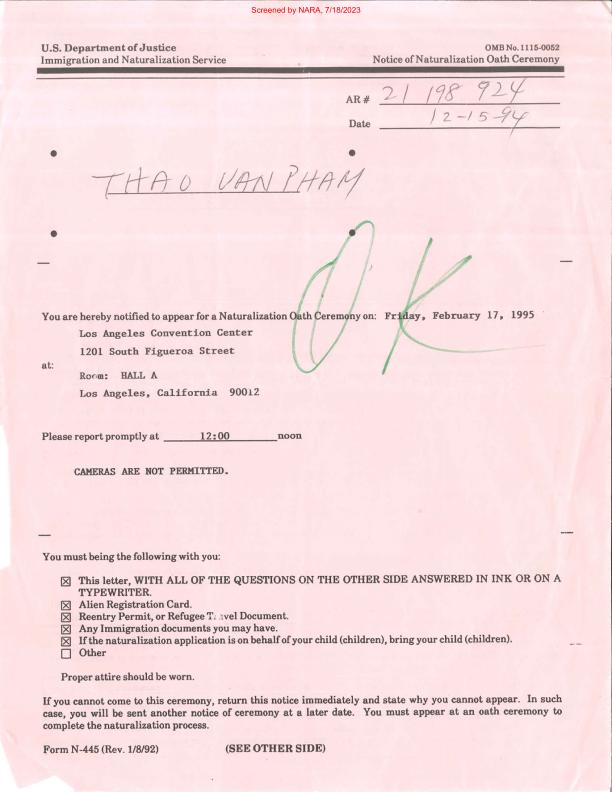 Screened by NARA, 7/18/2023
U.S. Department of Justice
Immigration and Naturalization Service
OMB No. 1115-0052
Notice of Naturalization Oath Ceremony
AR # 21 198 924
Date 12-15-94
THAO VAN PHAM
OK
You are hereby notified to appear for a Naturalization Oath Ceremony on: Friday, February 17, 1995
Los Angeles Convention Center
1201 South Figueroa Street
at:
Room: HALL A
Los Angeles, California 90012
Please report promptly at 12:00 noon
CAMERAS ARE NOT PERMITTED.
You must being the following with you:
☒ This letter, WITH ALL OF THE QUESTIONS ON THE OTHER SIDE ANSWERED IN INK OR ON A
TYPEWRITER.
☒ Alien Registration Card.
☒ Reentry Permit, or Refugee Travel Document.
☒ Any Immigration documents you may have.
☒ If the naturalization application is on behalf of your child (children), bring your child (children).
☐ Other
Proper attire should be worn.
If you cannot come to this ceremony, return this notice immediately and state why you cannot appear. In such
case, you will be sent another notice of ceremony at a later date. You must appear at an oath ceremony to
complete the naturalization process.
Form N-445 (Rev. 1/8/92) (SEE OTHER SIDE)